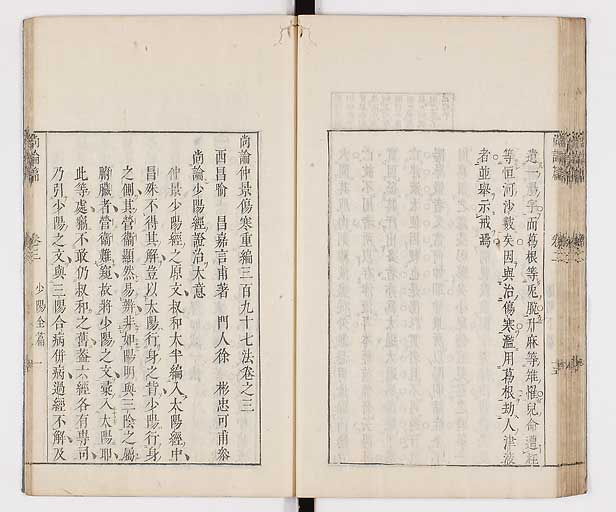 遺一湯字而葛根等冤脫升麻等雉罹兒命遭枉
等恒河沙數矣因與治傷寒濫用葛根劫人津液
者並舉示戒焉
尚論仲景傷寒重編三百九十七法卷之三
西昌喻 昌嘉言甫著 門人徐 彬忠可甫叅
尚論少陽經證治大意
仲景少陽經之原文叔和大半編入太陽經中
昌殊不得其解豈以太陽行身之背少陽行身
之側其營衛顯然易辨非如陽明與三陰之屬
腑臟者營衛難窺故將少陽之文彙入太陽耶
此等處竊不敢仍叔和之舊蓋六經各有專司
乃引少陽之文與三陽合病併病過經不解及
尚論篇
卷三
少陽全篇
一